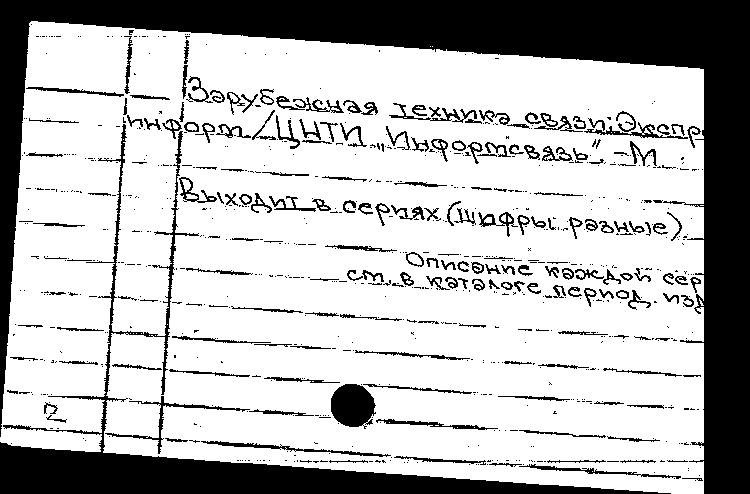 Зарубежная техника связи: Экспр
информ / ЦНТИ „Информсвязь". – М.
Выходит в сериях (шифры разные).
Описание каждой сер
см. в каталоге период. изд
2